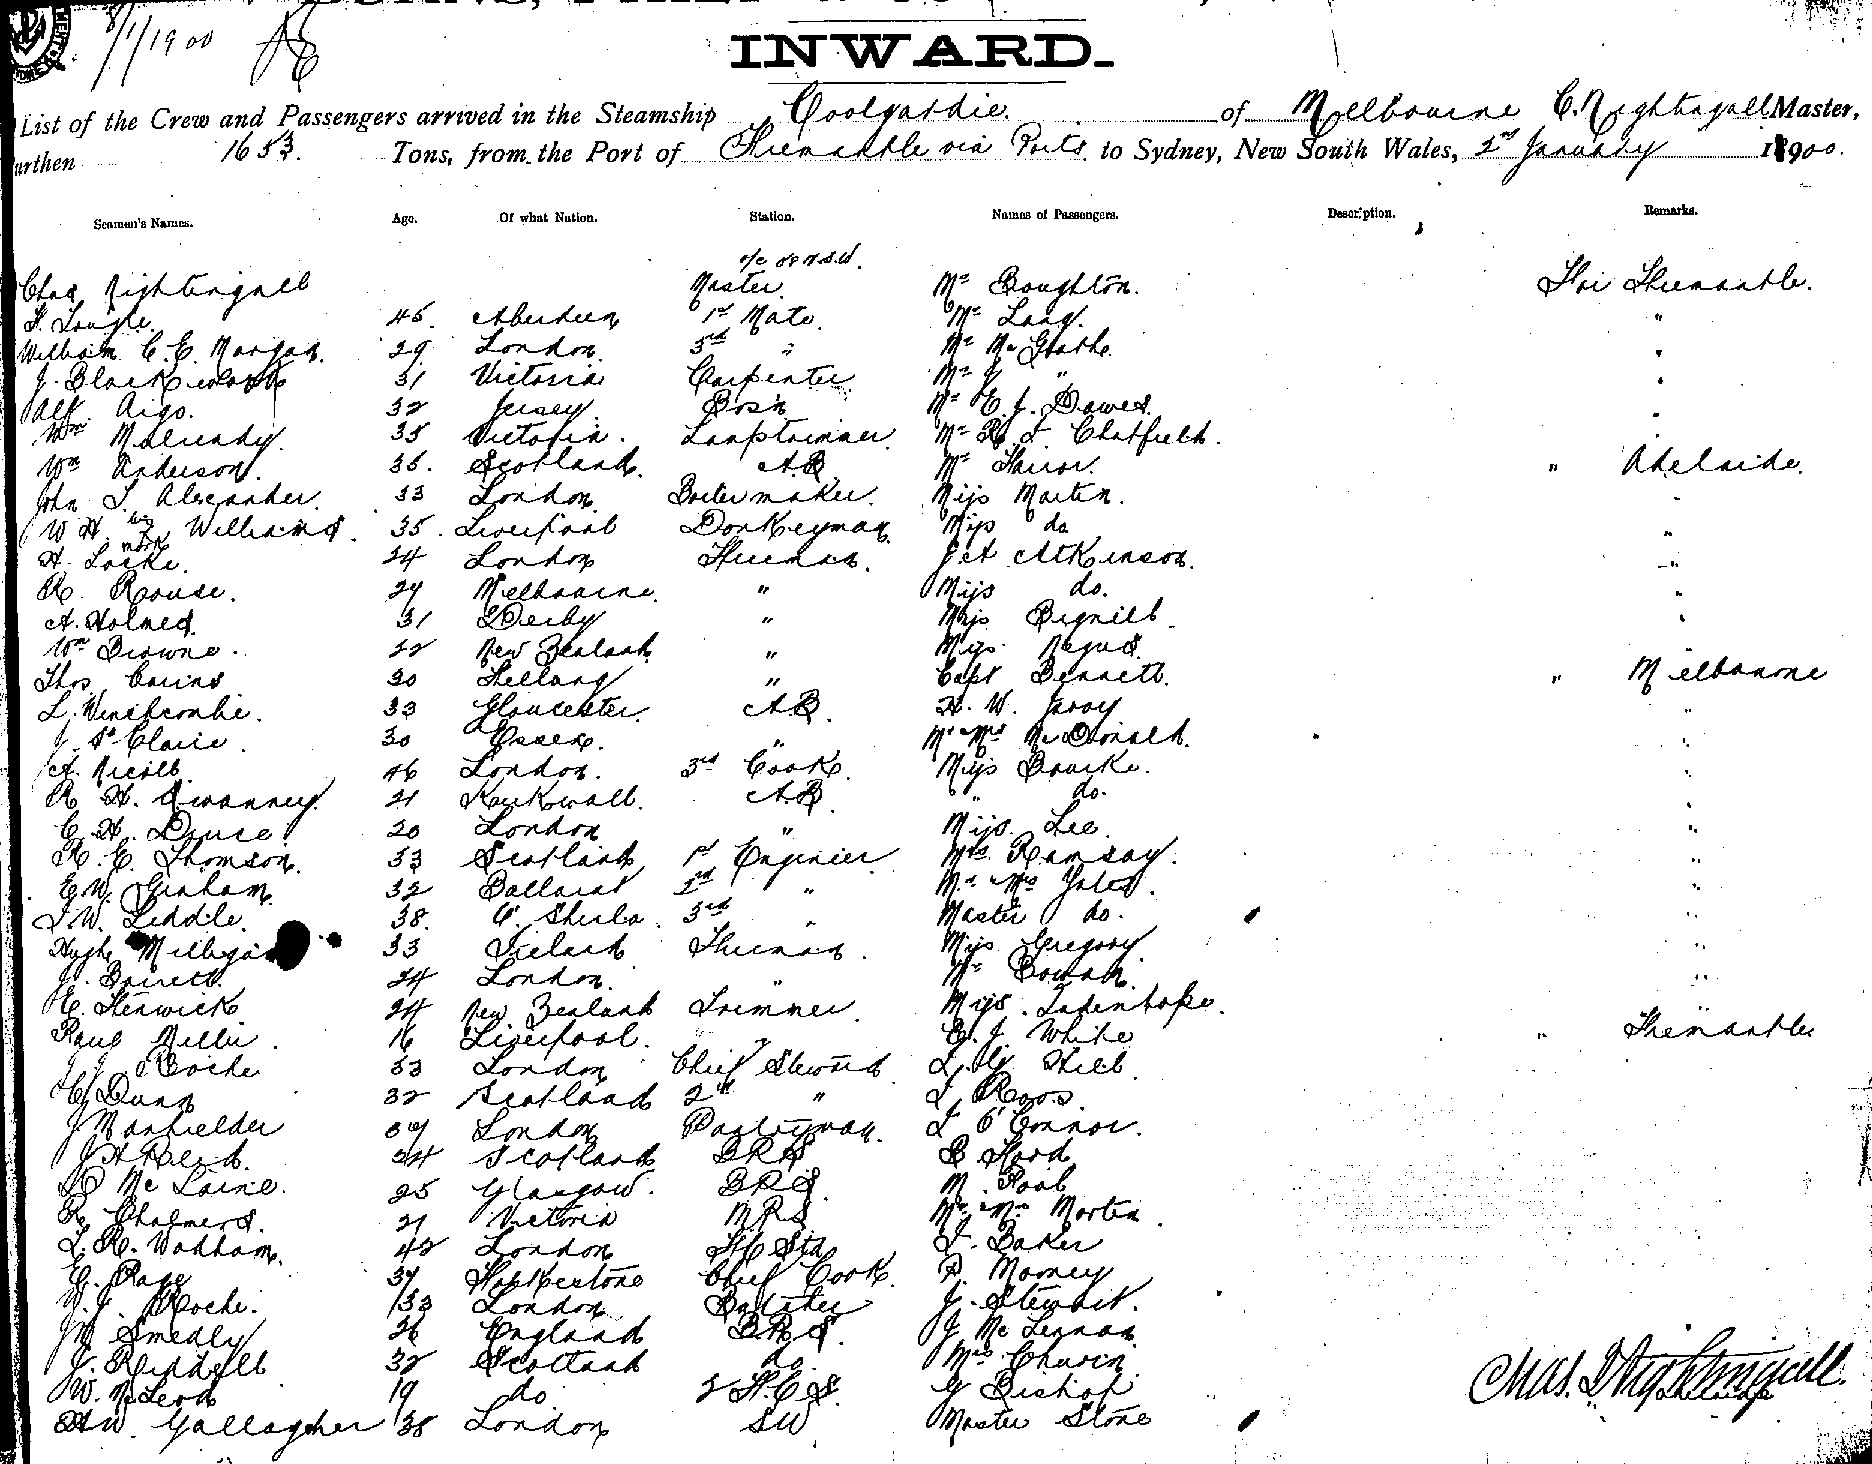 8/1/1900
INWARD.
List of the Crew and Passengers arrived in the Steamship Coolgardie of Melbourne C. Nightingall Master,
Burthen 1653 Tons, from the Port of Fremantle via Ports to Sydney, New South Wales, 2nd January 1900.
Seamen's Names. Age. Of what Nation. Station. Names of Passengers. Description. Remarks.
Chas Nightingall Master Mr Boughton. For Fremantle.
46 Aberdeen 1st Mate Mr Lang. "
William C. E. Morgan. 29 London 3rd " Mr "
J. Blackwood 31 Victoria Carpenter Mr J " "
Alf. 32 Jersey Bosn Mr E. J. Dawes. "
Wm 35 Victoria. Lamptrimmer Mr R. J. Chatfield.
Wm Anderson. 35. Scotland. A.B Mr " Adelaide.
John S. Alexander. 33 London Boilermaker. Miss Martin. "
W H. Williams. 35. Liverpool Donkeyman Miss do "
H. Locke. 24 London Fireman. J A Atkinson. "
R. Rouse. 29 Melbourne. " Miss do. "
A. Holmes. 31 Derby " Miss Bignill "
Wm Browne. 22 New Zealand " Miss Negus
Thos Cairns 30 " Capt Bennett. " Melbourne
L. Winchcombe. 33 Gloucester. A.B. H. W. "
J. St Claire. 30 Essex. " Mr & Mrs McDonald. "
A. Nicoll 46 London. 3rd Cook. Miss Bourke. "
R. H. Swanney. 21 Kirkwall. A.B " do. "
C. H. Druce 20 London " Miss Lee. "
R. C. Thomson. 33 Scotland 1st Engineer Mrs Ramsay. "
E. W. Graham. 32 Ballarat 2nd " Mr & Mrs Yates. "
J W. Liddle. 38. 3rd " Master do. "
Hugh Milligan 33 Ireland Fireman. Miss Gregory "
J. Barrett. 24 London. " Mr Bowan "
C. Fenwick 24 New Zealand Trimmer. Miss
Paul Miller. 16 Liverpool. " E. J. White " Fremantle
J. J. Roche 33 London Chief Steward L. G. Hill.
C. Dunn 32 Scotland 2nd " J. Roos.
J Manfielder London Pantryman. J O'Connor.
J A Reid. 24 Scotland B.R.S B Ford
R McLaine. 25 Glasgow. B.R.S. M. Pool
R. Chalmers. 21 Victoria M.R.S Mr & Mrs Martin.
L. R. Wadham. 42 London J. Baker
E. Page 37 Folkestone Chief Cook. P. Mooney
J. J. Roche. 33 London Butcher J. Stewart.
J W Smedly 26 England B.R.S. J McLennan
J. Riddell 32 Scotland do. Mrs
W. McLeod 19 do G Bishop
Gallagher 38 London SW Master Stone
Chas. Nightingall.